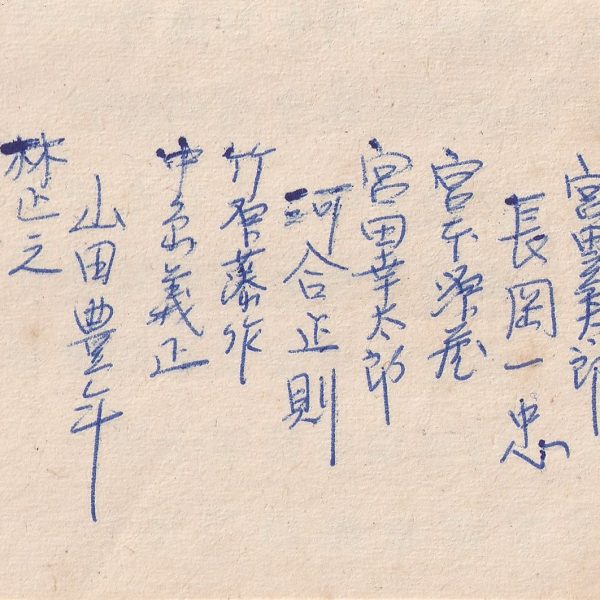 宮田
長岡一忠
宮下
宮田幸太郎
河合正則
竹原藤作
中島義正
山田豊年
林正之